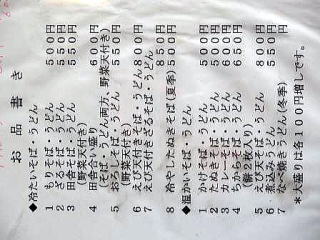 お品書き
◆冷たいそば・うどん
1 もりそば・うどん 500円
2 ざるそば・うどん 550円
3 田舎そば・うどん 550円
(野菜天付き)
4 田舎合い盛り
(そば・うどん両方、野菜天付き)
5 おろしそば・うどん 550円
(野菜天付き)
6 えび天付きそば・うどん 800円
7 えび天付きざるそば・うどん
850円
8 冷やしたぬきそば(夏季)
◆温かいそば・うどん
1 かけそば・うどん 500円
2 たぬきそば・うどん
3 カレーそば・うどん
4 ちからそば・うどん
(餅2枚入り)
5 えび天そば・うどん 800円
6 煮込みうどん
7 なべ焼きうどん(冬季)
*大盛りは各100円増しです。